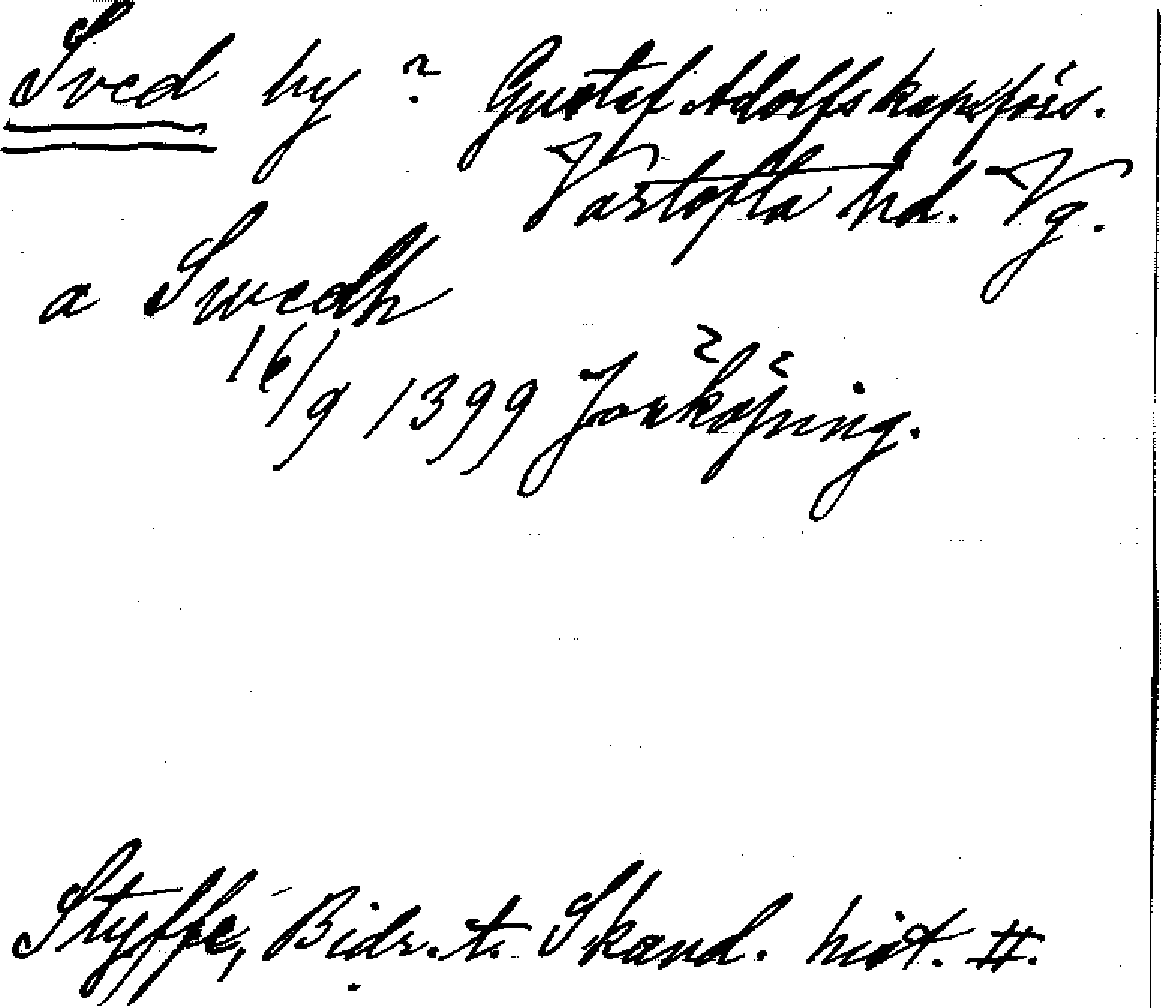 Sved by? Gustaf Adolfs kapellförs.
Vartofta hd. Vg.
a Swedh
16/9 1399 Jönköping.
Styffe, Bidr. t. Skand. hist. II.